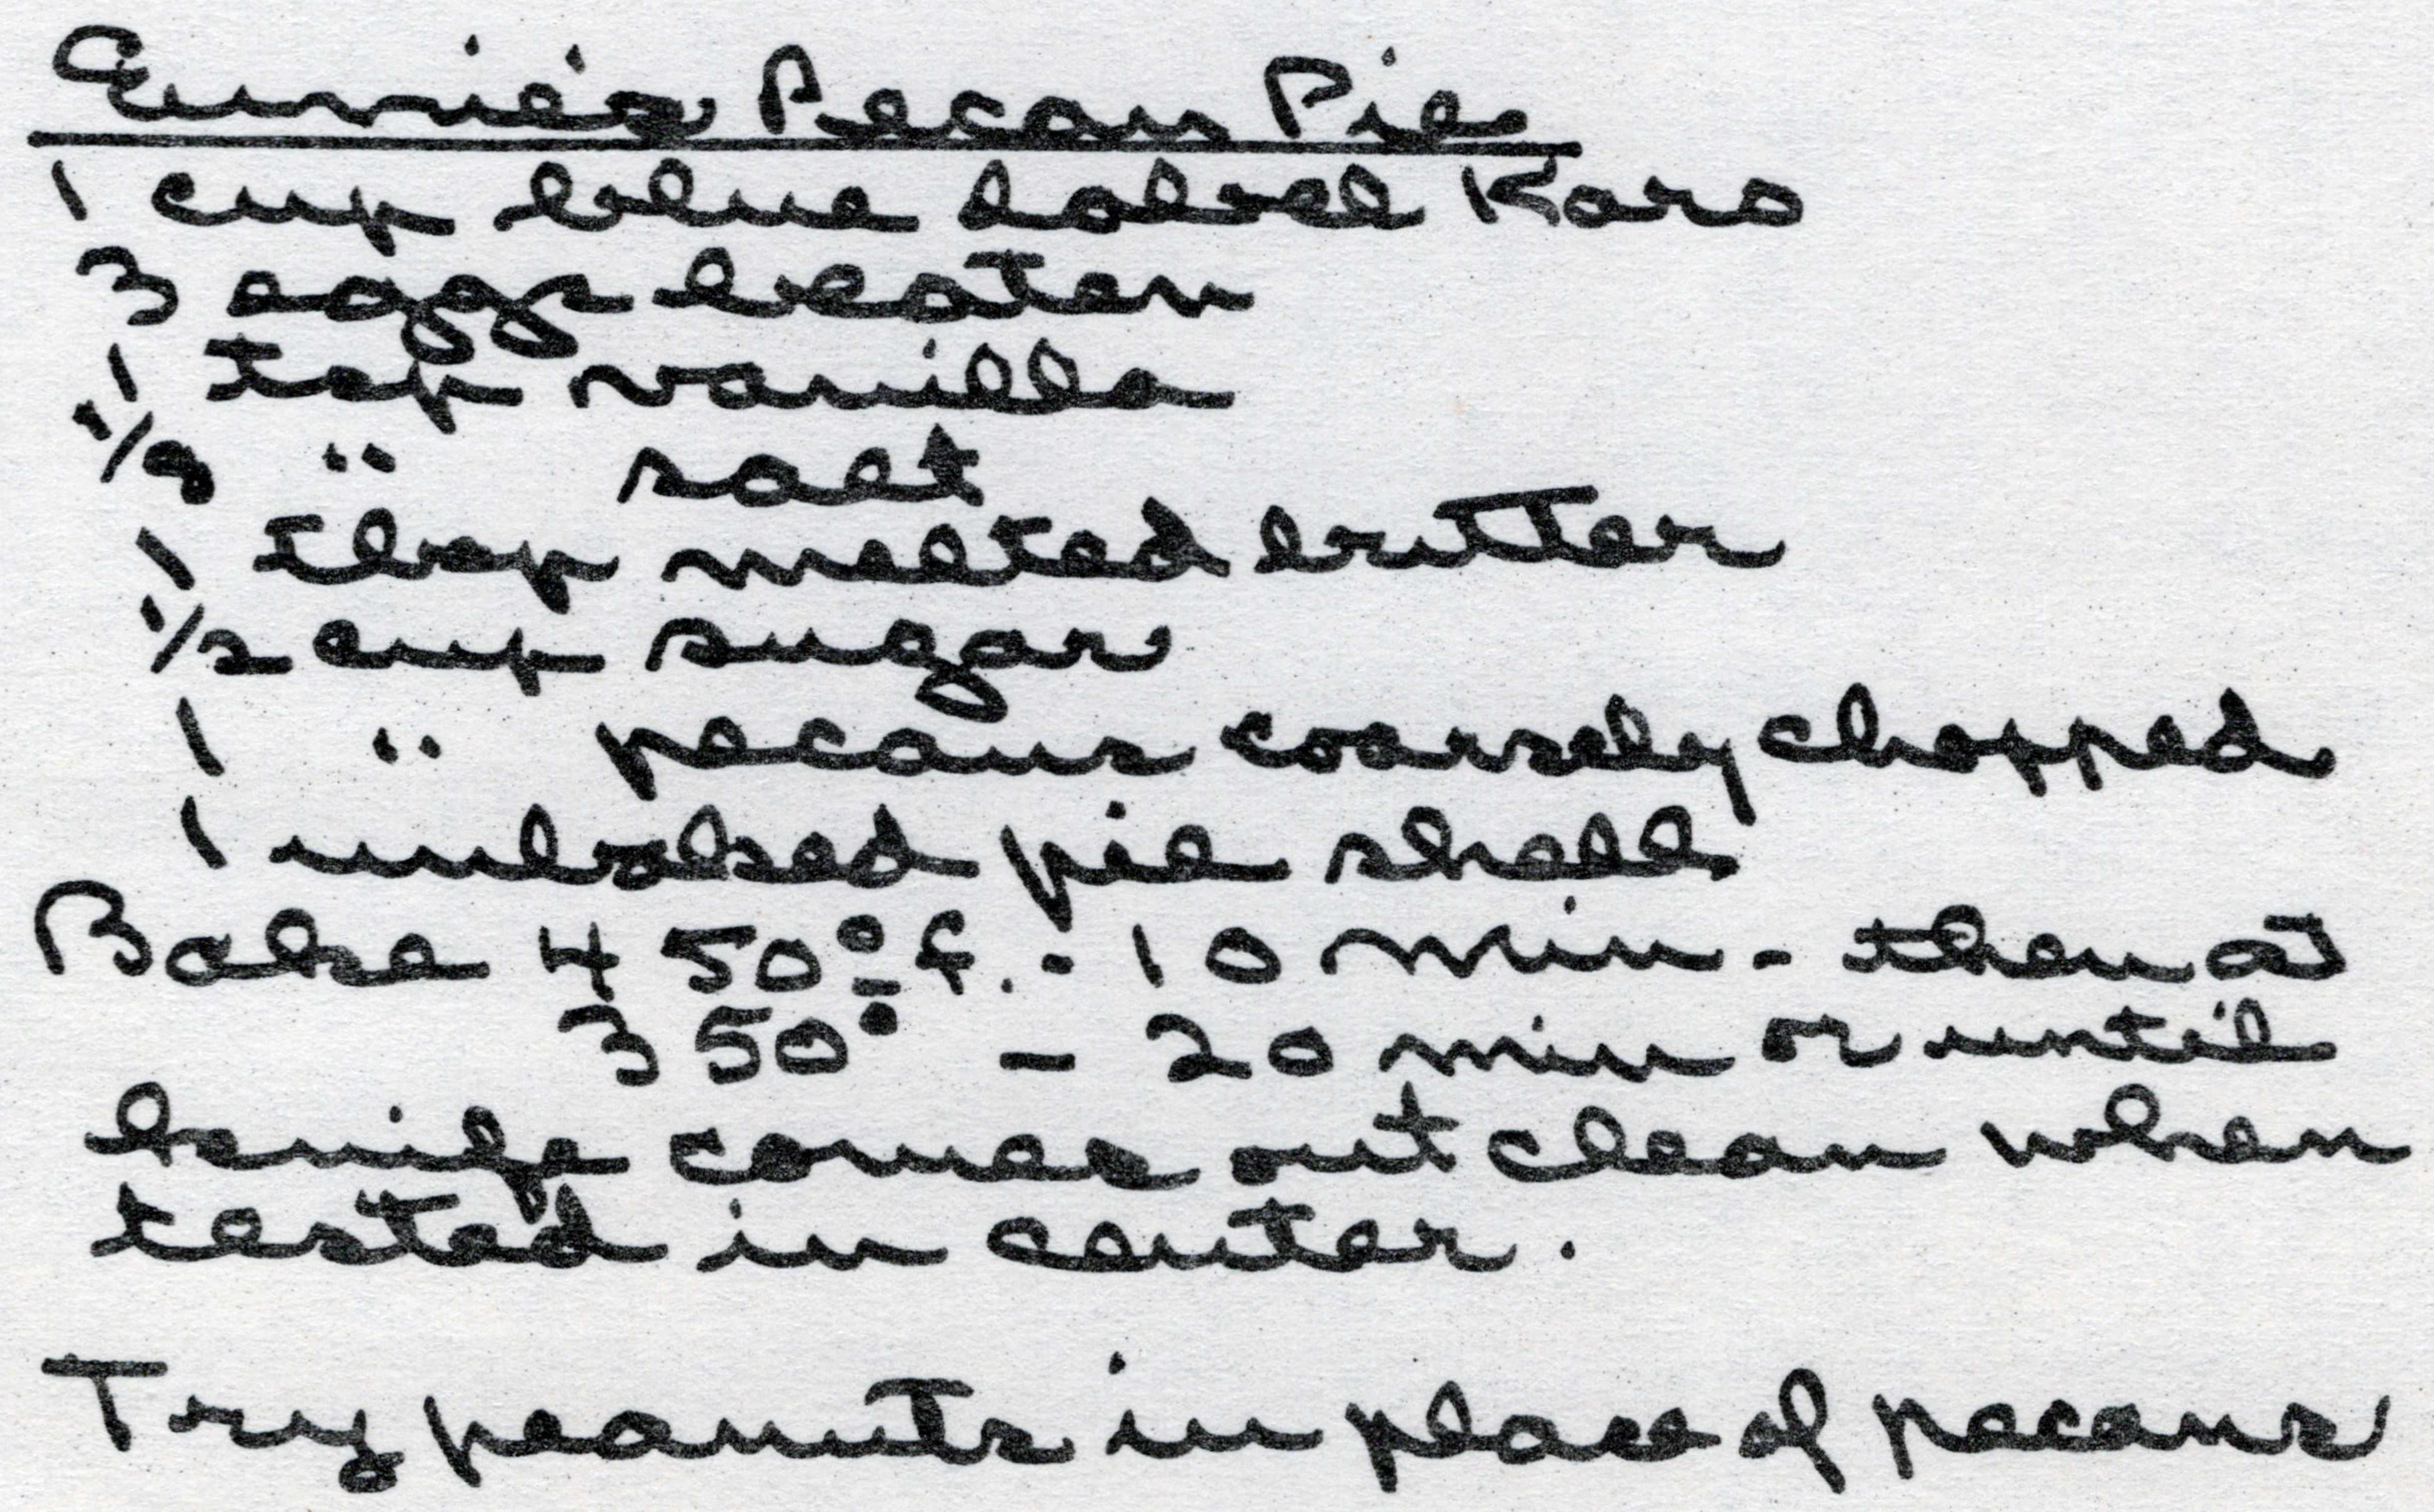 Ernie's Pecan Pie
1 cup blue label Karo
3 eggs beaten
1 tsp vanilla
1/8 " salt
1 tbsp melted butter
1/2 cup sugar
1 " pecans coarsely chopped
1 unbaked pie shell
Bake 450° f. - 10 min - then at
350° - 20 min or until
knife comes out clean when
tested in center.
Try peanuts in place of pecans